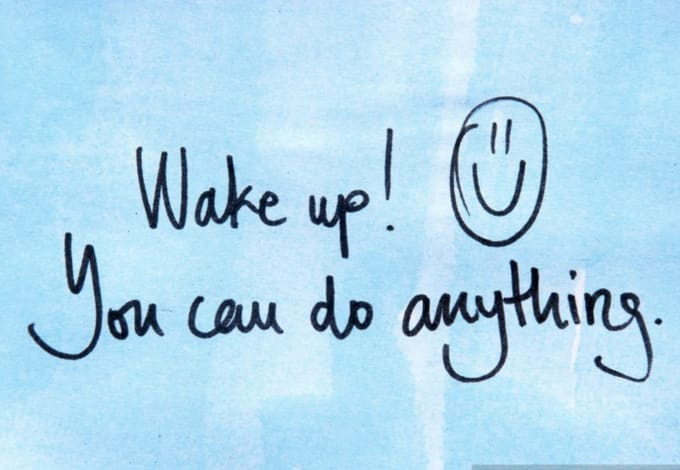 Wake up!
You can do anything.